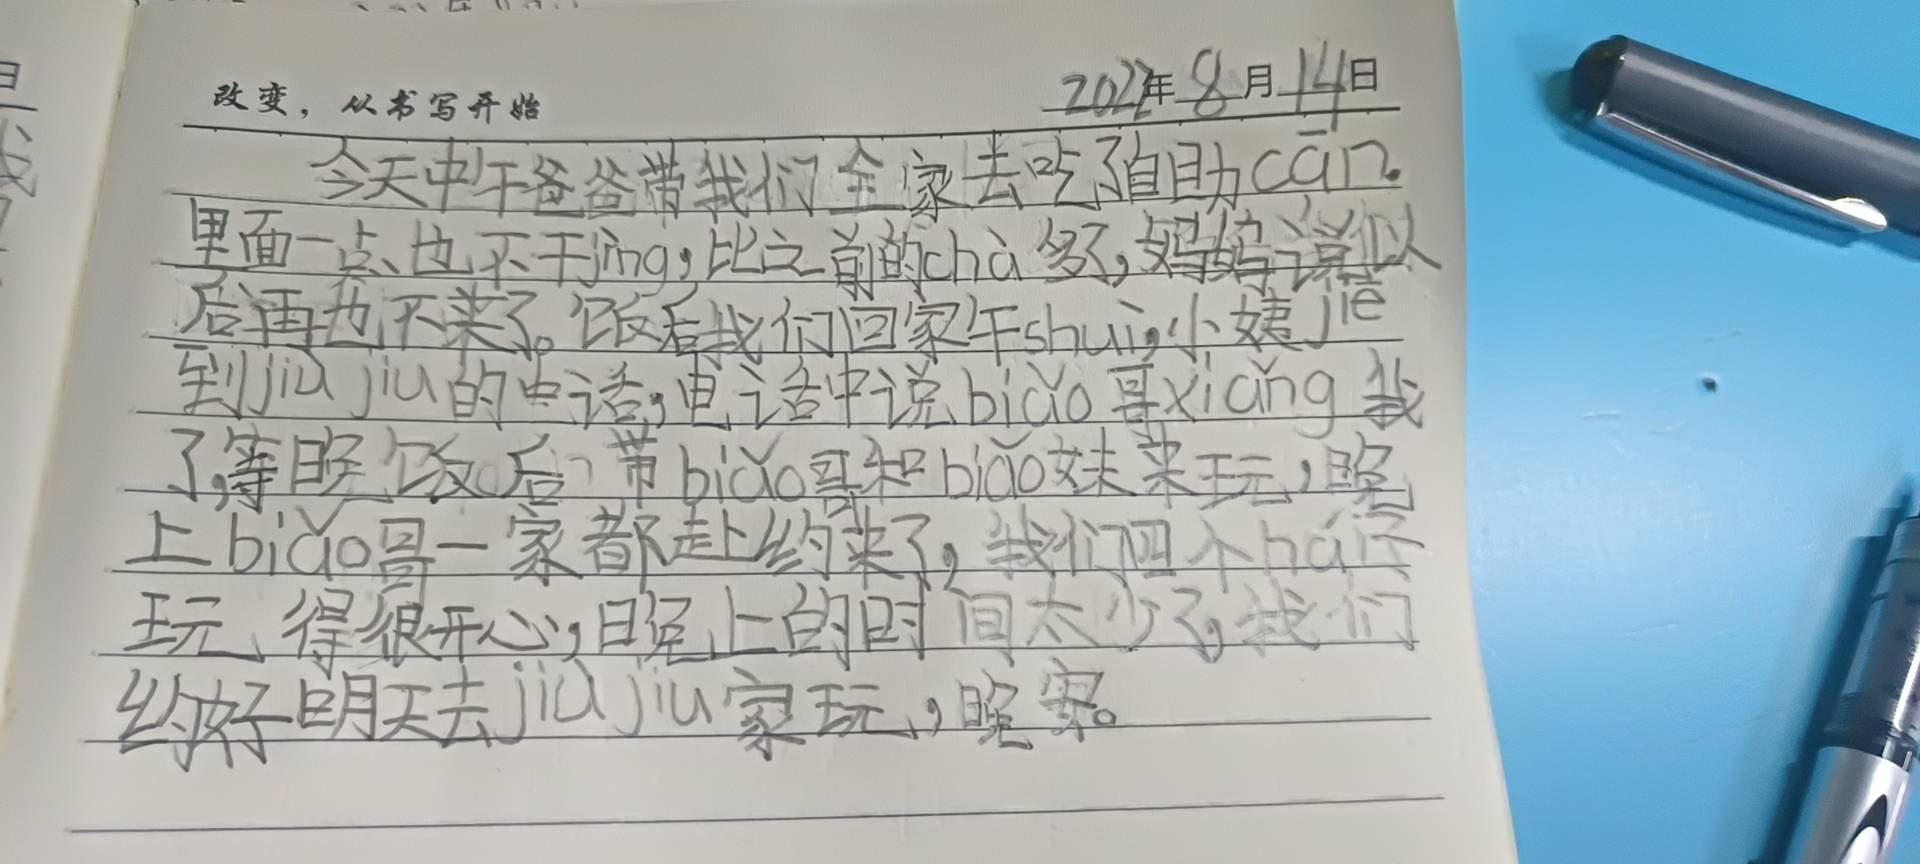 改变，从书写开始
2022年8月14日
今天中午爸爸带我们全家去吃了自助cān.
里面一点也不干jing，比之前的chà多了，妈妈说似
后再也不来了。饭后我们回家午shui，小姨jiē
到jiù jiu的电话，电话中说biǎo哥xiǎng我
了，等晚饭后带biǎo哥和biǎo妹来玩，晚
上biǎo哥一家都赴约来了，我们四个hái子
玩得很开心，晚上的时间太少了，我们
约好明天去jiù jiu家玩，晚安。